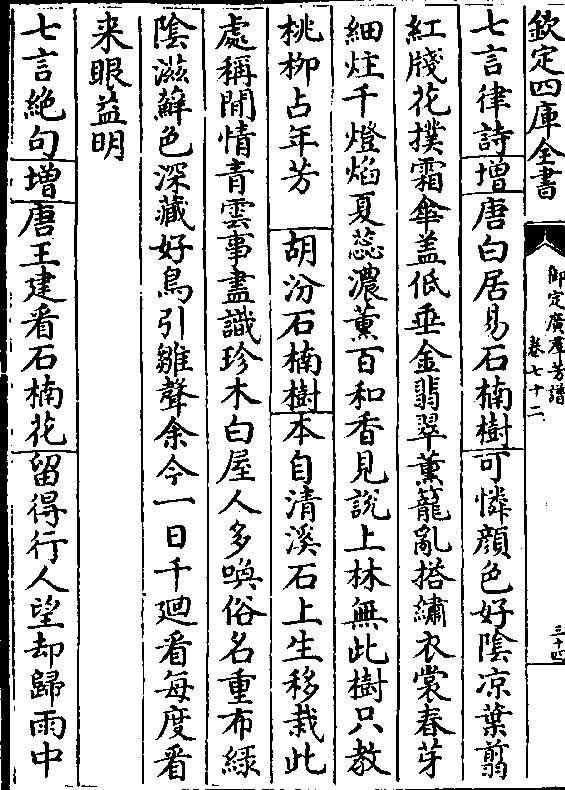 欽定四庫全書
御定廣羣芳譜
卷七十二
三十四
七言律詩增唐白居易石楠樹可憐顔色好陰凉葉翦
紅牋花撲霜傘盖低垂金翡翠薰籠亂搭繡衣裳春芽
細炷千燈焰夏蕊濃薰百和香見說上林無此樹只教
桃柳占年芳 胡汾石楠樹本自清溪石上生移栽此
處稱閒情青雲事盡識珍木白屋人多喚俗名重布緑
陰滋蘚色深藏好鳥引雛聲余今一日千廻看每度看
来眼益明
七言絶句增唐王建看石楠花留得行人望却歸雨中